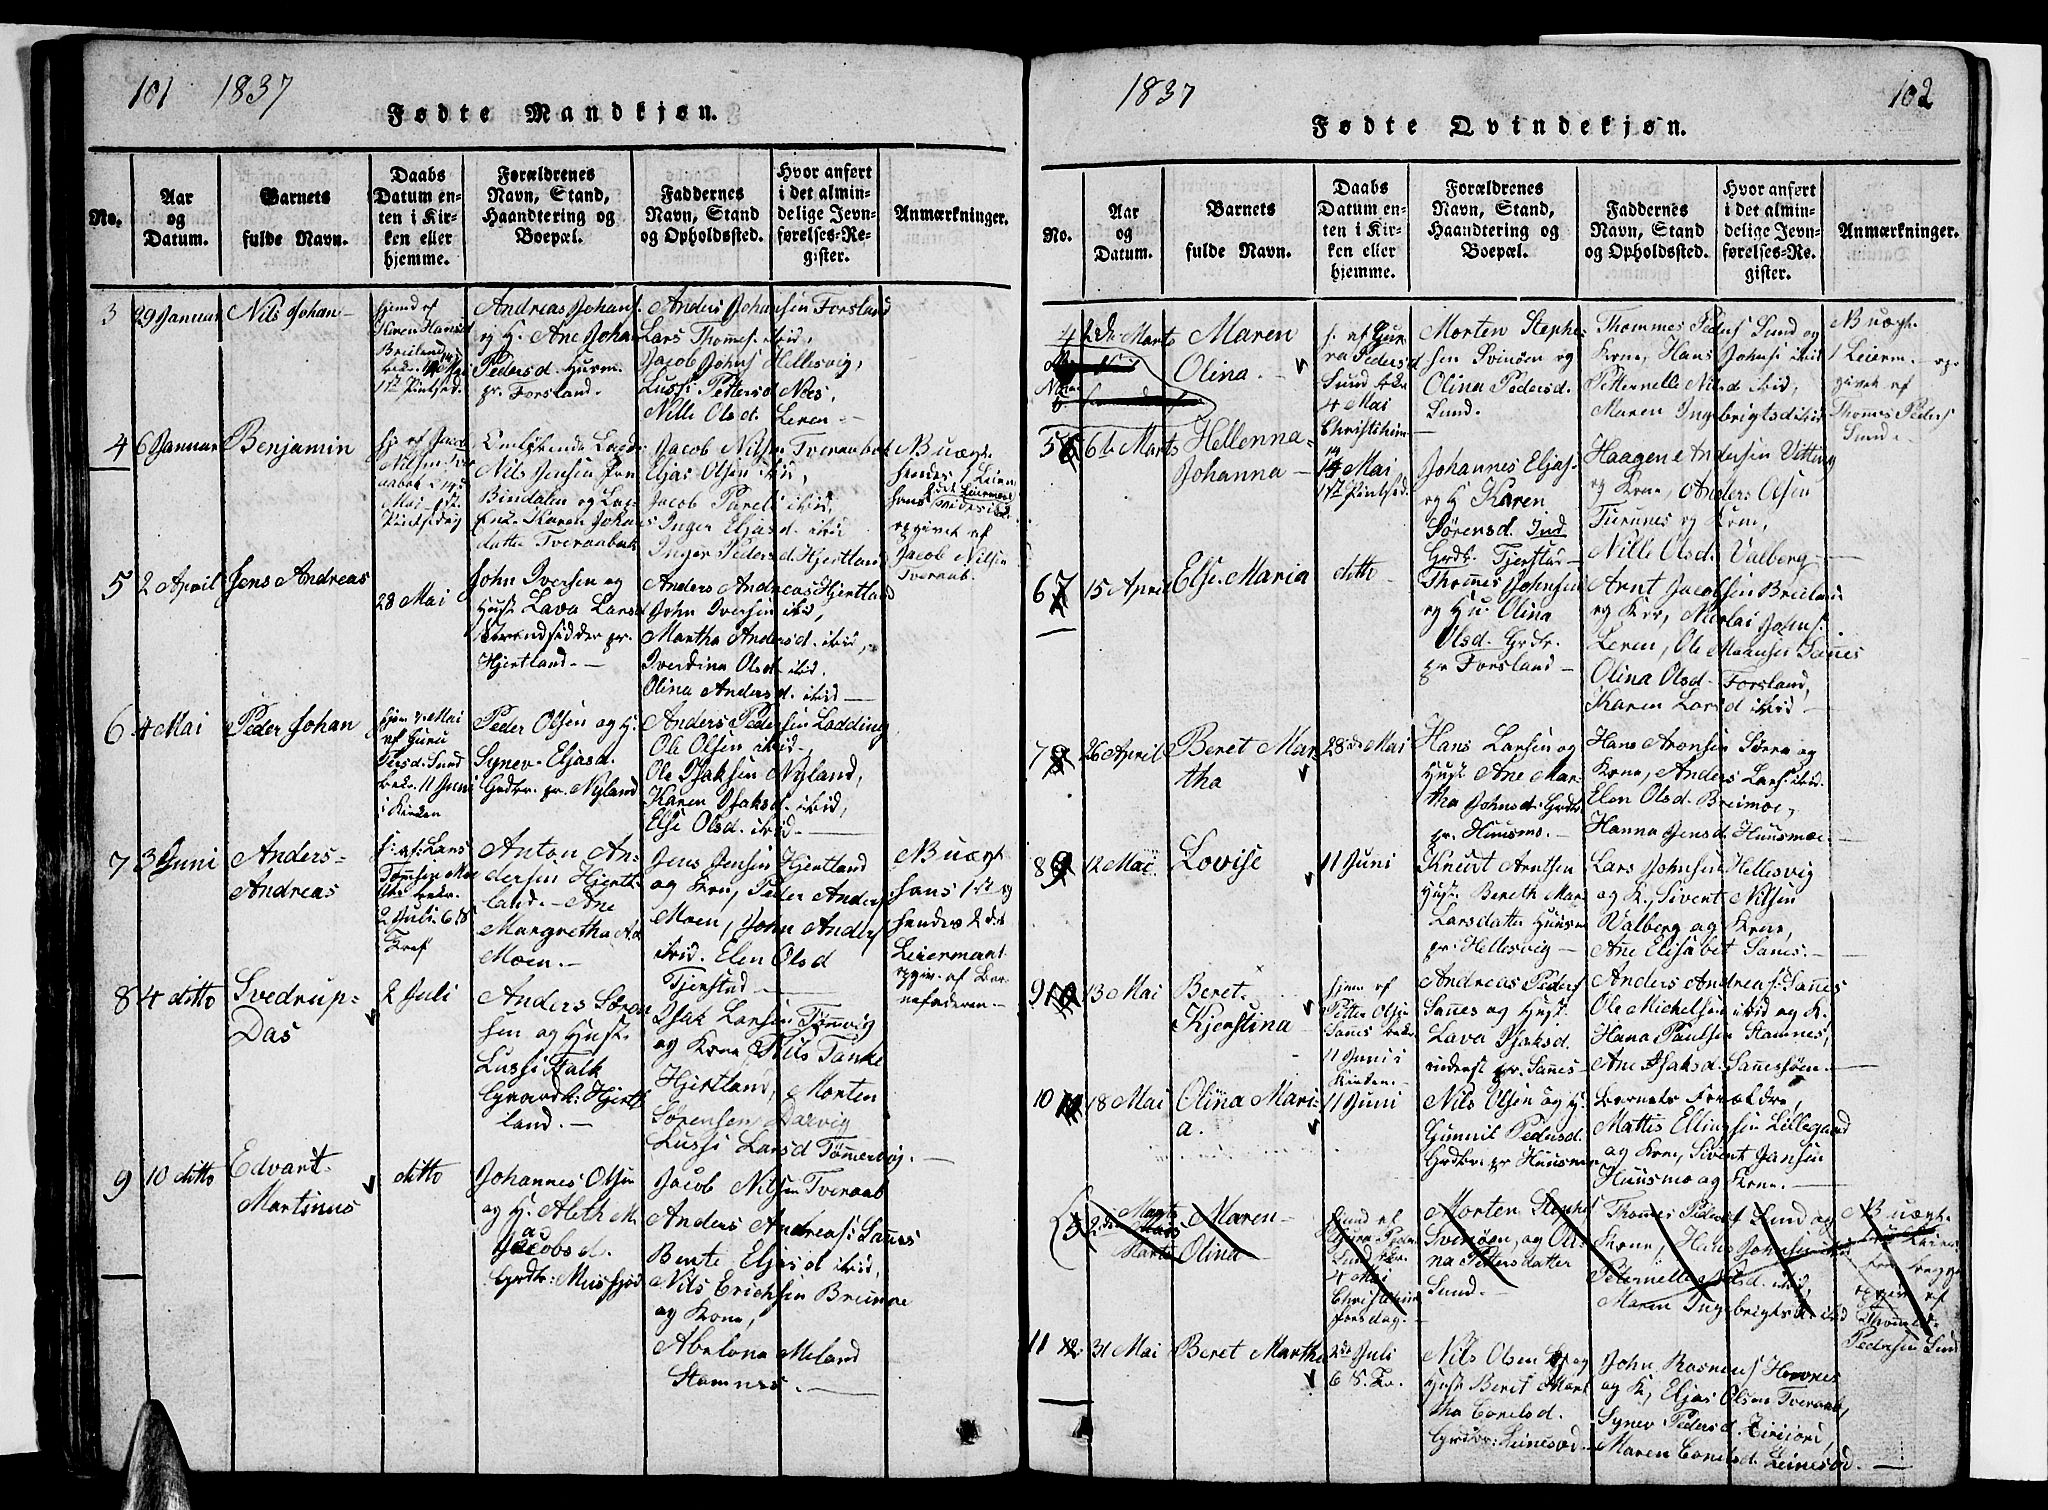 101 1837
Fødte Mandkjøn.
No.
Aar
og
Datum.
Barnets
fulde Navn.
Daabs
Datum en-
ten i Kir-
ken eller
hjemme.
Forældrenes
Navn, Stand,
Haandtering og
Boepæl.
Faddernes
Navn, Stand
og Opholdssted.
Hvor anført
i det almin-
delige Jevn-
førelses-Re-
gister.
Anmærkninger.
3 29 Januar Nils Johan
hjemd af
Hansd
Breiland
Andreas Johans.
og H. Ane Johan
Pedersd. Huusm.
pr. Forsland.
Anders Johansen Forsland
Lars Thomes. ibid,
Jacob Johns Hellesvig,
Lussi Pettersd Næs,
Nille Olsd. Leren
4 6 Januar Benjamin
hj. af Jacob
Nilsen Tver
aabak d. 14
Mai 1ste
Pintsedag
Nils Jensen
Bindalen og
Enk. Karen Johans
datter Tveraabak
Jacob Nilsen Tveraabak
Eljas Olsen ibid,
Jacob Pareli ibid,
Inger Eljasd. ibid
Inger Pedersd Hjertland
NB uægt.
hendes 1
opgivet af
Jacob Nilsen
Tveraab.
5 2 April Jens Andreas
28 Mai
John Iversen og
Hust. Lava Larsd
Strandsidder pr.
Hjertland.
Anders Andreas Hjertland
John Iversen ibid,
Martha Andersd. ibid,
Iverdina Olsd ibid.
Olina Andersd. ibid
6 4 Mai Peder Johan
hjem 7 Mai
af Guru
Pedsd. Sund
bekr. 11 Juni
i Kirken
Peder Olsen og H.
Synev. Eljasd.
Grdbr. pr. Nyland
Anders Pedersen Lodding
Ole Olsen ibid,
Ole Isaksen Nyland,
Karen Isaksd. ibid,
Else Olsd. ibid.
7 3 Juni Anders
Andreas
h: af: Lars
Tømsen
bekr.
2 Juli 6 S
Anton An-
dersen Hjert-
land. Ane
Margretha Ad
Moen.
Jens Jensen Hjertland
og Kone, Peder Anders
Moen, John Anders
ibid. Elen Olsd
Tjerstad
NB uægt
hans 1ste og
hendes 2det
Leiermaal
opgiv. af Bar-
nefaderen
8 4 ditto Svedrup
Das
2 Juli
Anders Søren
sen og Hust.
Lussi Falk
Gaardb: Hjert
land.
Isak Larsen Tømvig
og Kone Nils Tanke
Hjertland, Morten
Sørensen Darvig
Lussi Larsd Tømmervig.
9 10 ditto Edvart
Martinus
ditto
Johannes Olsen
og H. Aleth M.
Jacobsd.
Grdbr: Musfjord
Jacob Nilsen Tveraab
Anders Andreas: Sannes
Bente Eljasd ibid,
Nils Erichsen Breimoe
og Kone,
Abelona Meland
Stamnes.
1837 102
Fødte Qvindekjøn.
No.
Aar
og
Datum.
Barnets
fulde Navn.
Daabs
Datum en-
ten i Kir-
ken eller
hjemme.
Forældrenes
Navn, Stand,
Haandtering og
Boepæl.
Faddernes
Navn, Stand
og Opholdssted.
Hvor anført
i det almin-
delige Jevn-
førelses-Re-
gister.
Anmærkninger.
4 2de Marts Maren
Olina.
h. af Gur-
ra Pedersd
Sund
4 Mai
Christihim
Morten Stephe
sen Svinøen og
Olina Pedersd.
Sund.
Thommes Peders Sund og
Kone, Hans Johns ibid
Petternelle Nilsd ibid,
Maren Ingebrigtsd ibid
NB uægt.
1 Leierm. op-
givet af
Thomes Peders
Sund.
5 6te Marts Hellenna
Johanna
14 Mai
1ste Pintsed.
Johannes Eljas-
og H Karen
Sørensd. Ind
Grdb. Tjerstar
Haagen Andersen Vitting
og Kone, Anders Olsen
Turmoes og Kone,
Nille Olsd. Valberg
6 15 April Else Maria
ditto
Thomes Johnsen
og Hu. Olina
Olsd. Grdbr.
pr Forsland
Arnt Jacobsen Breiland
og Kone, Nicolai Johns.
Leren, Ole Monsen Sannes
Olina Olsd. Forsland,
Karen Larsd ibid
7 26 April Beret Mar
tha
28de Mai
Hans Larsen og
Hust Ane Mar-
tha Johnsd. Grdbr
pr. Huusmo.
Hans Aronsen Sørra og
Kone, Anders Lars. ibid.
Elen Olsd. Breimoe,
Hanna Jensd. Huusmoe.
8 9 12 Mai Lovise
11 Juni
Knudt Arntsen
Hust Bereth Mari
Larsdatter Huusm
pr. Hellesvig
Lars Johnsen Hellesvig
og K., Sivert Nilsen
Valberg og Kone,
Ane Elisabet Sanes.
9 10 13 Mai Beret
Kjerstina
hjem af
Petter Olsen
Sannes bekr.
11 Juni i
Kirken.
Andreas Peders
Sannes og Hust.
Lava Isaksd.
inderst pr. Sanes
Anders Andreas: Sannes
Ole Michelsen ibid og K.
Hana Paulsen Stamnes,
Ane Isaksd. Sannessøen.
10 11 18 Mai Olina Mari-
a.
11 Juni
Nils Olsen og H.
Gunnil Pedersd.
Grdbr. pr Huusmoe
Barnets Forældre,
Mattis Ellingsen Lillegaard
og Kone, Sivert Jansen
Huusmo og Kone.
5 2de Marts
Marts
Maren
Olina
hjemd af
4 Mai
Christihim
farsdag.
Morten Stephs
Svinøen, og Oli
na Pettersdatter
Sund.
Thomes Peders Sund og
Kone, Hans Johnsen ibid
Peternelle Nilsd. ibid,
Maren Ingebrigtsd ibid
NB uægt.
opgiv. af
Thomes
Pedersen Sund
11 12 31 Mai Beret Martha
2de Juli
6 S. Tr.
Nils Olsen og
Hust Beret Mar
tha Conelsd.
Grdbr: Leinesød.
John Rasmus Havnes
og K, Eljas Olsen Tveraab,
Synev Pedersd.
Maren Conelsd Leinesød.